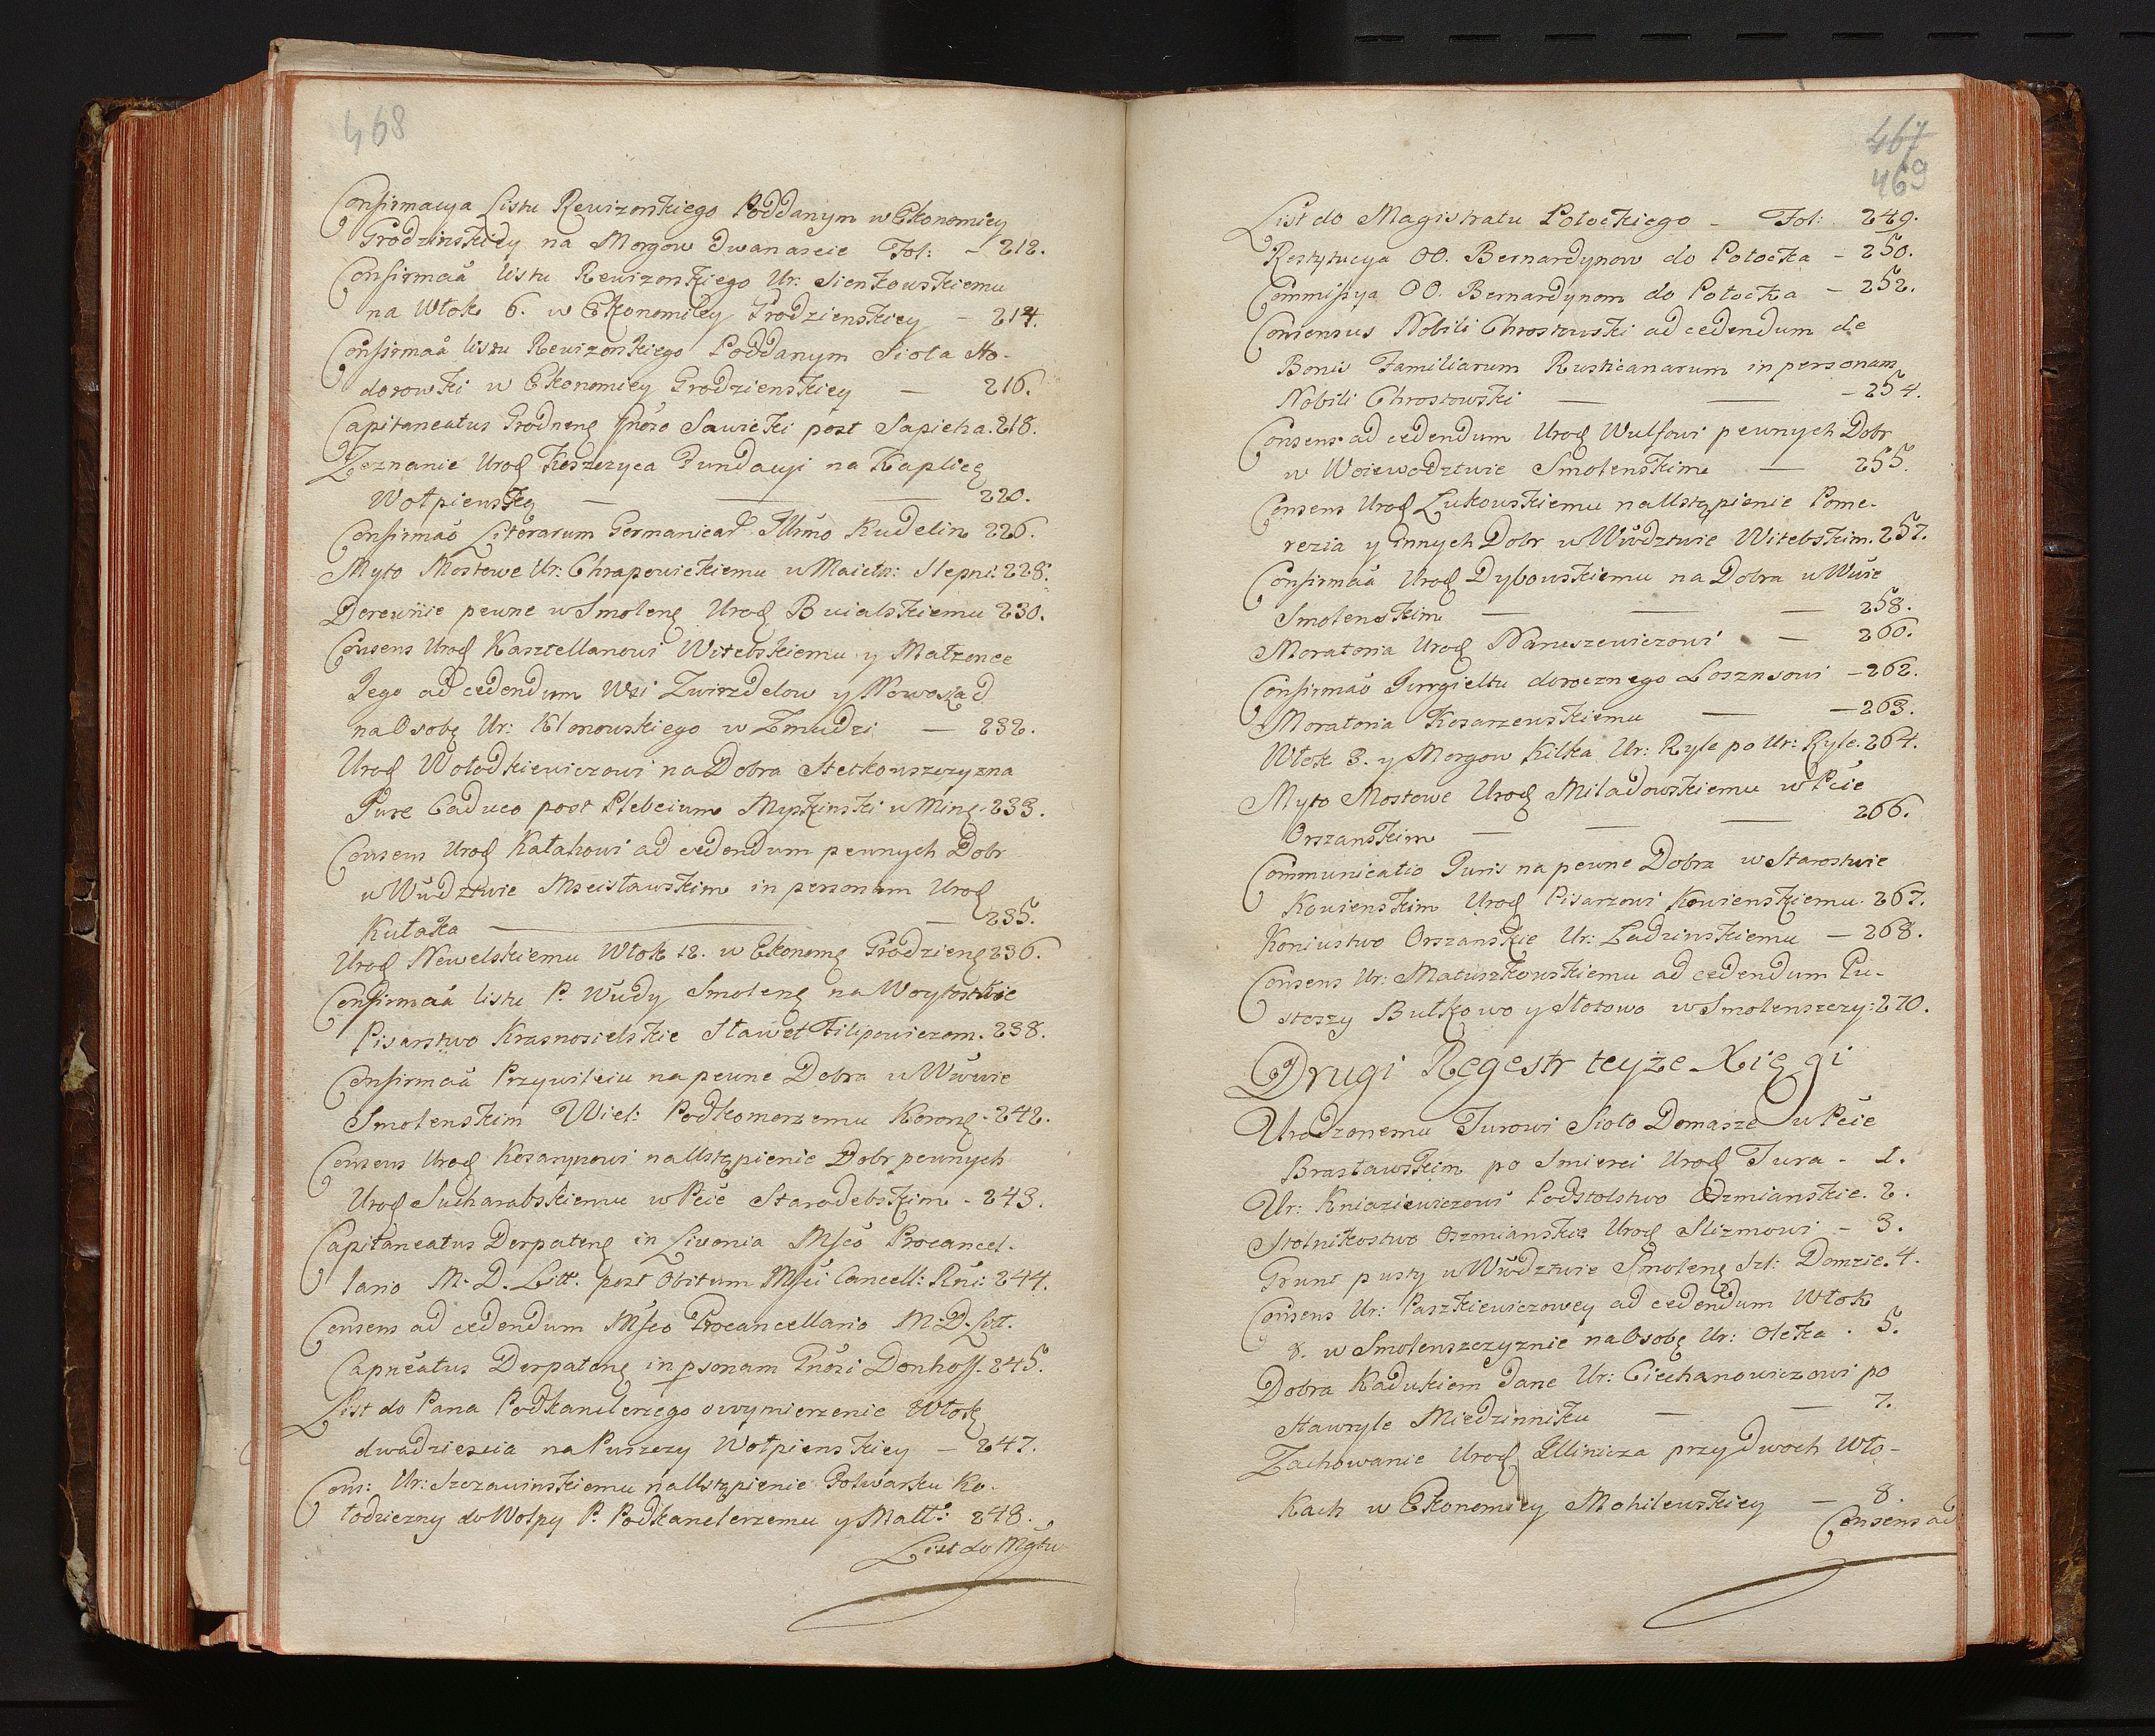 468
Confirmacya Listu Rewizorskiego Poddanym w Ekonomiey
Grodzinskiey na Morgow dwanascie Fol: - 212.
Confirmaã listu Rewizorskiego Ur: Sienkowskiemu
na Włok 6. w Ekonomiey Grodzienskiey - 214.
Confirmaã listu Rewizorskiego Poddanym Sioła Ho-
dorowki w Ekonomiey Grodzienskiey — 216.
Capitaneatus Grodneng Gñoso Sawicki post Sapieha. 218.
Zeznanie Urod Koszczyca Fundacyi na Kaplicę
Wołpienską — — — 220.
Confirmaõ Literarum Germanicar Illmo Kudelin 226.
Myto Mostowe Ur: Chrapowickiemu w Maiętn: Stepni: 228.
Derewnie pewne w Smoleng Urod Buialskiemu 230.
Consens Urod Kasztellanowi Witebskiemu y Małzonce
Jego ad cedendum Wsi Zwirzdelow y Nowosiad
na Osobę Ur: Klonowskiego w Zmudzi — 232.
Urod Wołodkiewiczowi na Dobra Steckowszczyzna
Jure Caduco post Plebeium Myszkinski w Ming. 233.
Consens Urod Kałakowi ad cedendum pewnych Dobr
w Wudztwie Mscisławskim in personam Urod
Kułaka — — 235.
Urod Newelskiemu Włok 12. w Ekonomg Grodzieng 236.
Confirmaã listu P. Wudy Smoleng na Woytostwie
Pisarstwo Krasnosielskie Sławet Filipowiczom. 238.
Confirmaã Przywileiu na pewne Dobra w Wuwie
Smolenskim Wiel: Podkomorzemu Korong. 242.
Consens Urod Kosarynowi na Ustąpienie Dobr pewnych
Urod Sucharabskiemu w Pcie Starodebskim - 243.
Capitaneatus Derpateng in Livonia Mfco Procancel-
lario M. D. Litt. post Obitum Mfci Cancell: Rñi: 244.
Consens ad cedendum Mfco Procancellario M. D. Litt.
Capnẽatus Derpateng in psonam Gñosi Donhoff. 245.
List do Pana Podkanclerzego o wymierzenie Włok
dwadziescia na Puszczy Wołpienskiey — 247.
Cons: Ur: Szczawinskiemu na Ustąpienie Folwarku Ko-
łodziezny do Wołpy P. Podkanclerzemu y Małł: 248.
List do Mgtu
467
469
List do Magistratu Połockiego - Fol: 249.
Restytucya OO. Bernardynow do Połocka - 250.
Commissya OO. Bernardynom do Połocka - 252.
Consensus Nobili Chrostowski ad cedendum de
Bonis Familiarum Rusticanarum in personam
Nobili Chrostowski — — - 254.
Consens ad cedendum Urod Wulfowi pewnych Dobr
w Woiewodztwie Smolenskim — 255.
Consens Urod Lukowskiemu na Ustąpienie Pome-
rezia y Innych Dobr w Wudztwie Witebskim. 257.
Confirmaã Urod Dybowskiemu na Dobra w Wuie
Smolenskim — — — 258.
Moratoria Urod Naruszewiczowi — 260.
Confirmaõ Jurgieltu dorocznego Losznsowi - 262.
Moratoria Kosarzewskiemu — - 263.
Włok 3. y Morgow Kilka Ur: Ryle po Ur: Ryle. 264.
Myto Mostowe Urod Miładowskiemu w Pcie
Orszanskim — — — 266.
Communicatio Juris na pewne Dobra w Starostwie
Kowienskim Urod Pisarzowi Kowienskiemu. 267.
Koniustwo Orszanskie Ur: Ladzinskiemu — 268.
Consens Ur: Matuszkowskiemu ad cedendum Pu-
stoszy Bułkowo y Stotowo w Smolenszczy: 270.
Drugi Regestr teyze Xięgi
Urodzonemu Turowi Sioło Domasze w Pcie
Brasławskim po Smierci Urod Tura - 1.
Ur: Kniaziewiczowi Podstolstwo Ozmianskie. 2.
Stolnikostwo Oszmianskie Urod Slizniowi - 3.
Grunt pusty w Wudztwie Smoleng Szl: Domzie. 4.
Consens Ur: Paszkiewiczowey ad cedendum Włok
8. w Smolenszczyznie na Osobę Ur: Olecka . 5.
Dobra Kadukiem dane Ur: Ciechanowiczowi po
Hawryle Miedzinniku — — 7.
Zachowanie Urod Illinicza przy dwoch Wło-
kach w Ekonomiey Mohilewskiey — 8.
Consens ad